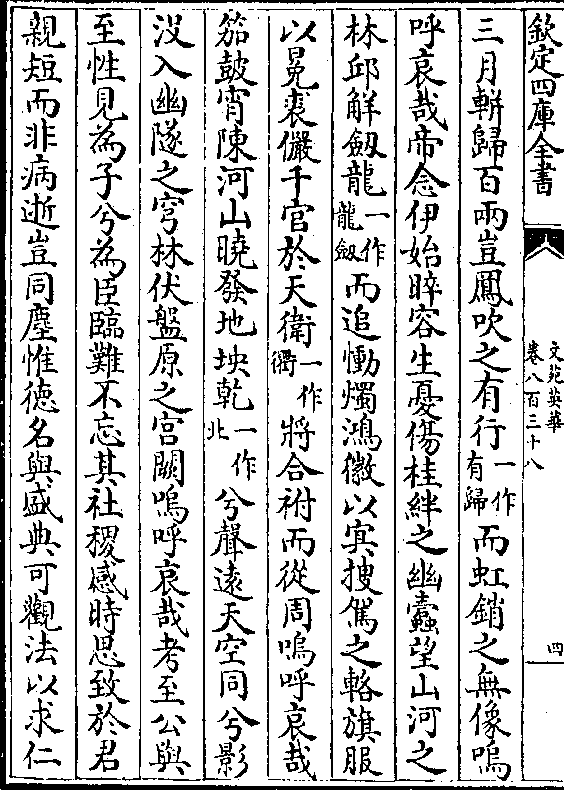 欽定四庫全書
文苑英華
卷八百三十八
四
三月輧歸百兩豈鳳吹之有行一作有歸而虹銷之無像嗚
呼哀哉帝念伊始睟容生憂傷桂絆之幽蠹望山河之
林邱解劔龍一作龍劔而追慟燭鴻徽以寘搜駕之輅旗服
以冕裘儼千官於天衛一作衢將合祔而從周嗚呼哀哉
笳鼓宵陳河山曉發地坱乾一作北兮聲遠天空同兮影
没入幽隧之穹林伏盤原之宫闕嗚呼哀哉考至公與
至性見為子兮為臣臨難不忘其社稷感時思致於君
親短而非病逝豈同塵惟徳名與盛典可觀法以求仁